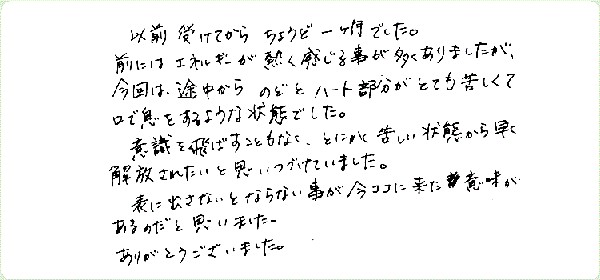 以前 受けてから ちょうど 一ヶ月でした。
前にはエネルギーが熱く感じる事が多くありましたが、
今回は、途中から のどとハート部分がとても苦しくて
口で息をするような状態でした。
意識を飛ばすこともなく、とにかく苦しい状態から早く
解放されたいと思いつづけていました。
表に出さないとならない事が今ココに来た意味が
あるのだと思いました。
ありがとうございました。